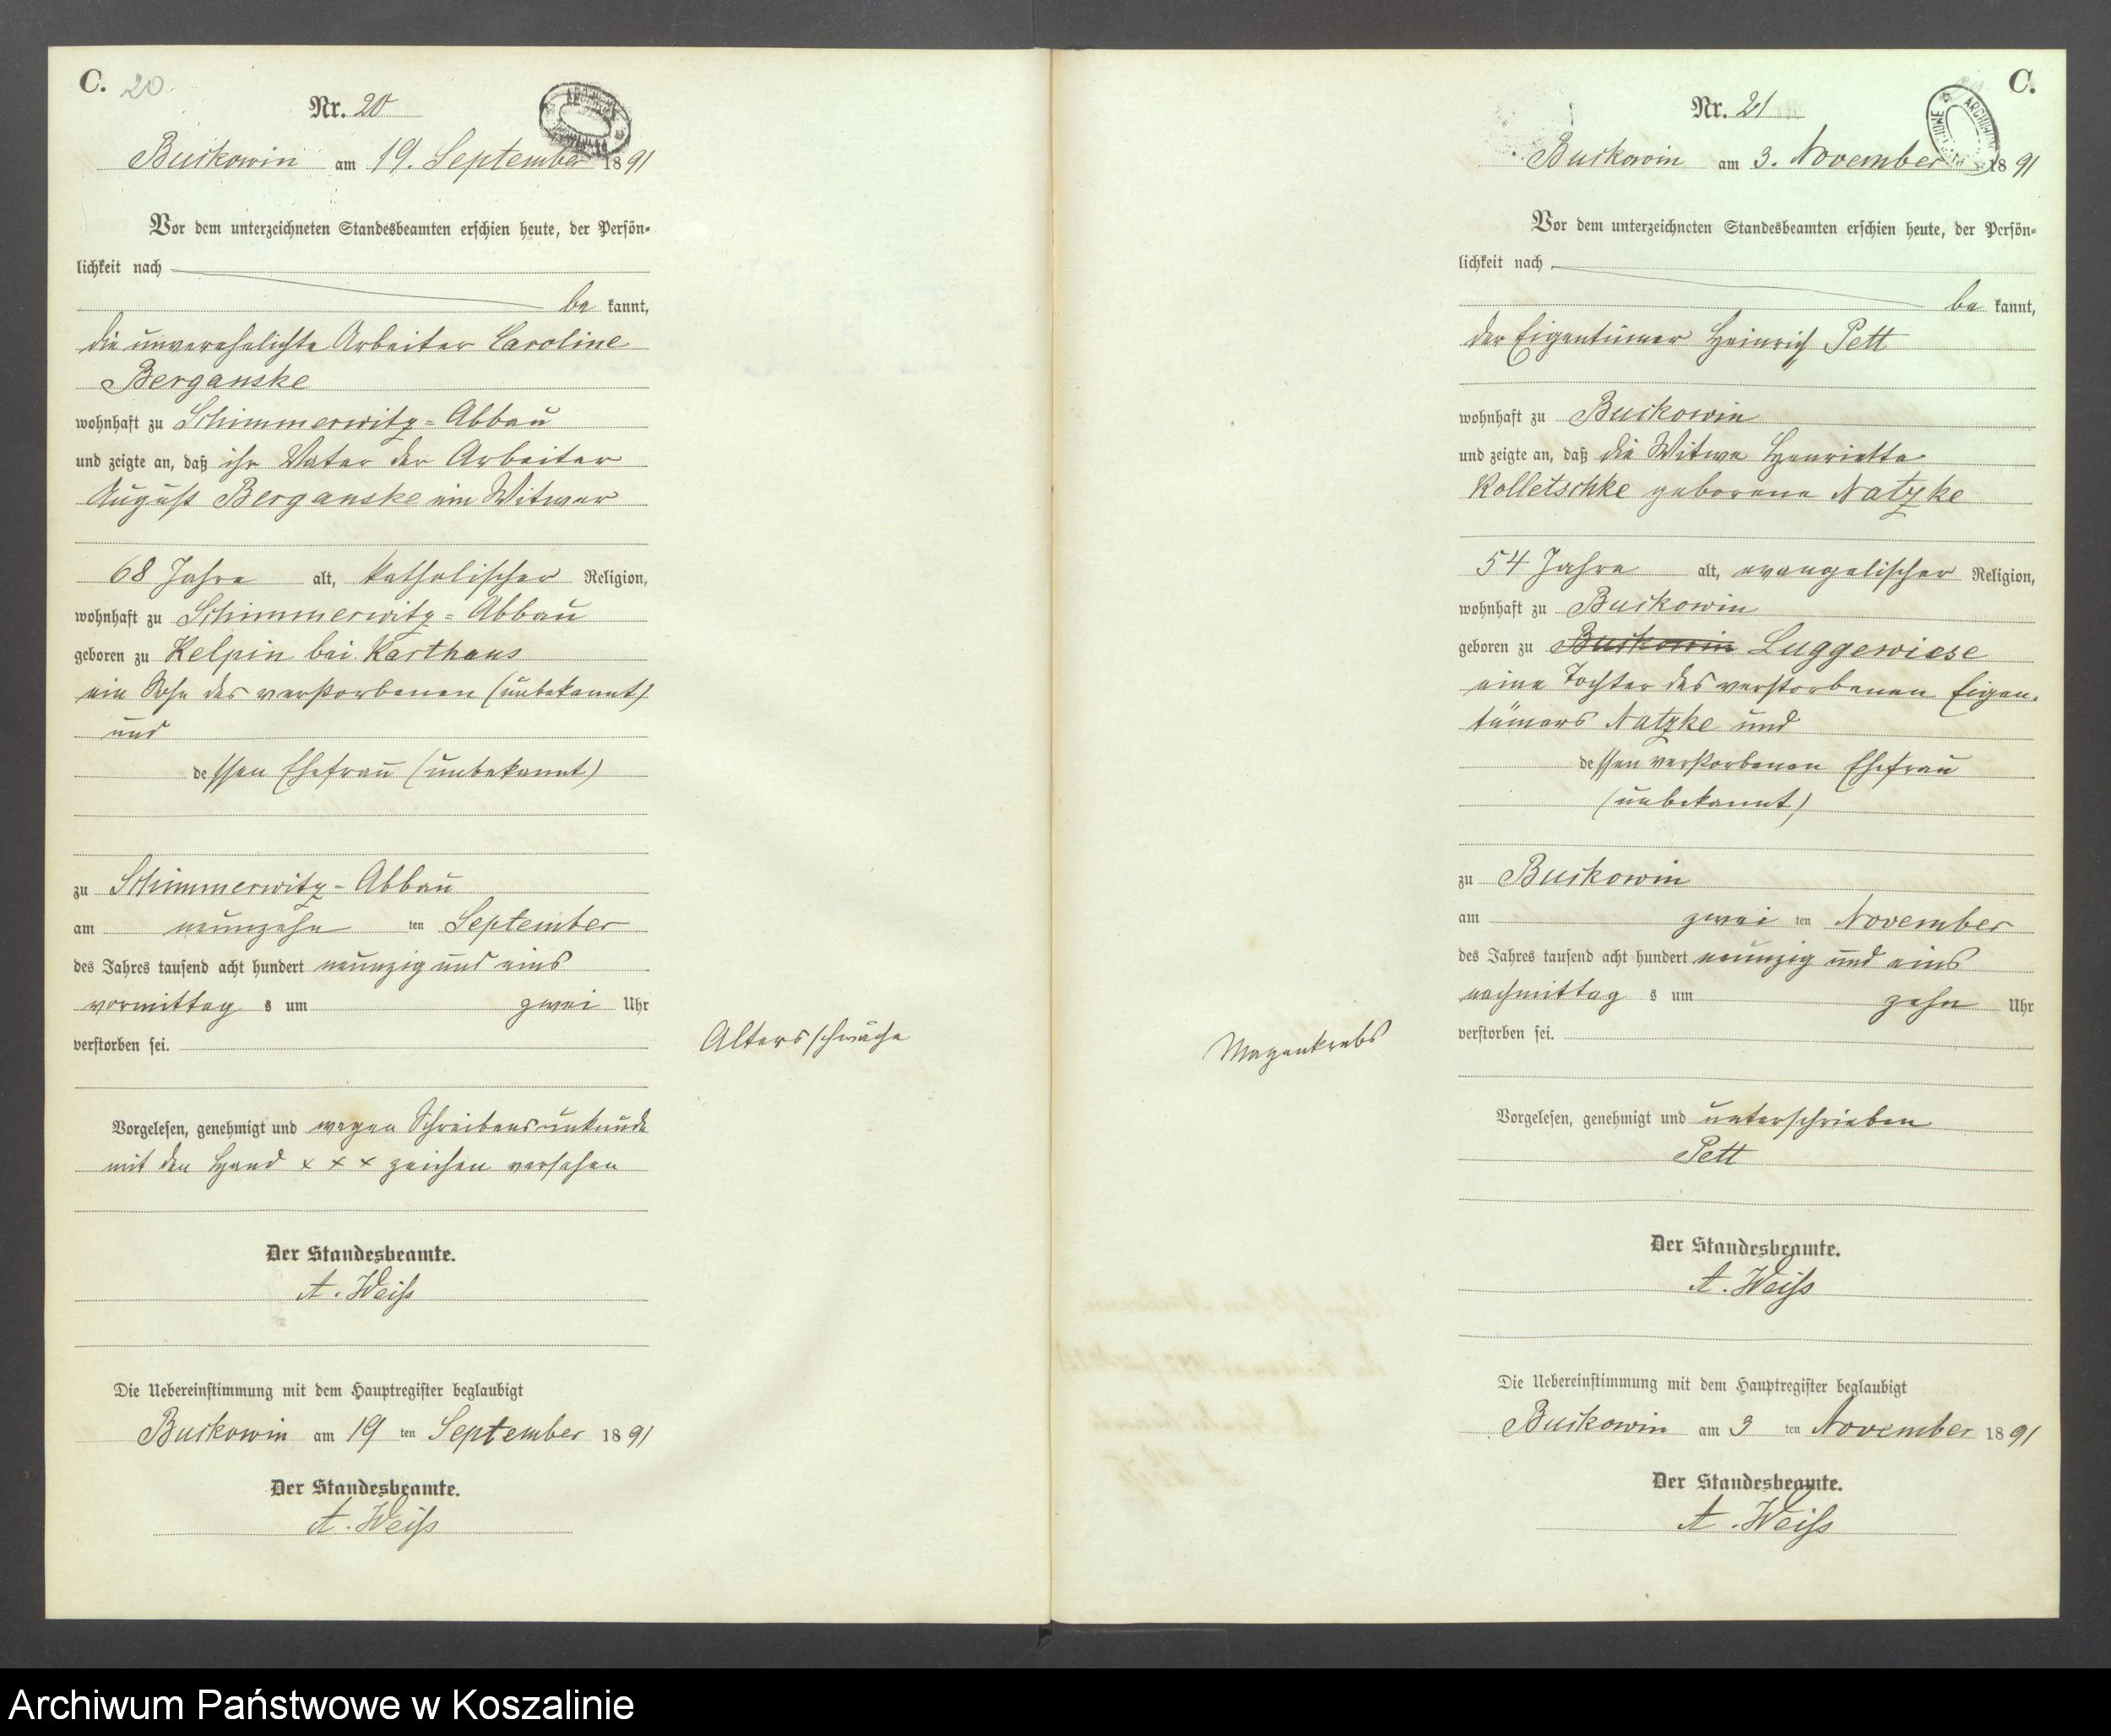 C. 20.
Nr. 20
Buckowin am 19. September 1891
Vor dem unterzeichneten Standesbeamten erschien heute, der Persön-
lichkeit nach
be kannt,
die unverehelichte Arbeiter Caroline
Berganske
wohnhaft zu Schimmerwitz-Abbau
und zeigte an, daß ihr Vater der Arbeiter
August Berganske ein Witwer
68 Jahre alt, katholischer Religion,
wohnhaft zu Schimmerwitz-Abbau
geboren zu Kelpin bei Karthaus
ein Sohn des verstorbenen (unbekannt)
und
dessen Ehefrau (unbekannt)
zu Schimmerwitz-Abbau
am neunzehn ten September
des Jahres tausend acht hundert neunzig und eins
vormittag s um zwei Uhr
verstorben sei.
Altersschwäche
Vorgelesen, genehmigt und wegen Schreibensunkunde
mit den Hand x x x zeichen versehen
Der Standesbeamte.
A. Weiß
Die Uebereinstimmung mit dem Hauptregister beglaubigt
Buckowin am 19 ten September 1891
Der Standesbeamte.
A. Weiß
C.
Nr. 21
Buckowin am 3. November 1891
Vor dem unterzeichneten Standesbeamten erschien heute, der Persön-
lichkeit nach
be kannt,
der Eigentümer Heinrich Pett
wohnhaft zu Buckowin
und zeigte an, daß die Witwe Henriette
Kolletschke geborene Natzke
54 Jahre alt, evangelischer Religion,
wohnhaft zu Buckowin
geboren zu Buckowin Luggewiese
eine Tochter des verstorbenen Eigen-
tümers Natzke und
dessen verstorbenen Ehefrau
(unbekannt)
zu Buckowin
am zwei ten November
des Jahres tausend acht hundert neunzig und eins
nachmittag s um zehn Uhr
verstorben sei.
Magenkrebs
Vorgelesen, genehmigt und unterschrieben
Pett
Der Standesbeamte.
A. Weiß
Die Uebereinstimmung mit dem Hauptregister beglaubigt
Buckowin am 3 ten November 1891
Der Standesbeamte.
A. Weiß
Archiwum Państwowe w Koszalinie